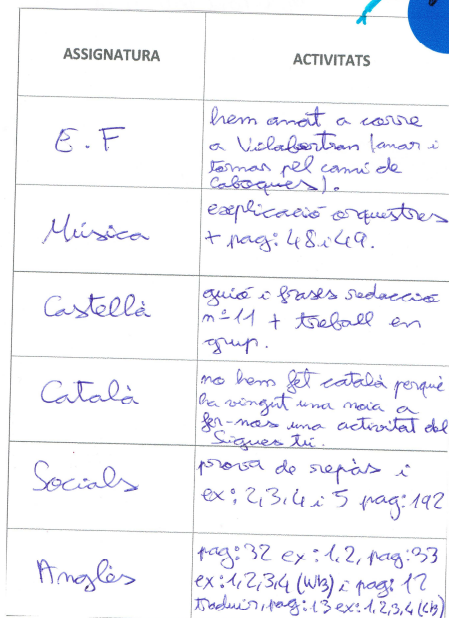 ASSIGNATURA
ACTIVITATS
E.F
hem anat a corre
a Vilabertran (anar i
tornar pel camí de
Caboques).
Música
explicació orquestres
+ pag: 48 i 49.
Castellà
guió i frases redacció
nº11 + treball en
grup.
Català
no hem fet català perquè
ha vingut una noia a
fer-nos una activitat del
Sigues tú.
Socials
prova de repàs i
ex: 2,3,4 i 5 pag: 192
Anglès
pag: 32 ex: 1,2, pag: 33
ex: 1,2,3,4 (WB) i pag: 12
traduir, pag: 13 ex: 1,2,3,4 (CB)